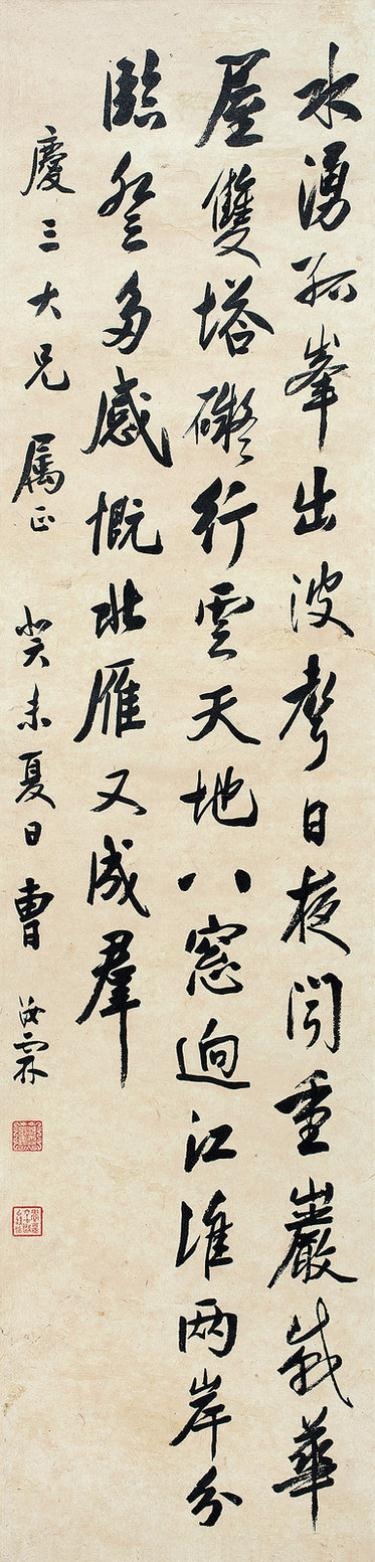 水湧孤峯出波聲日夜聞重巖峩華
屋雙塔礙行雲天地八窓逈江淮兩岸分
臨登多感慨北雁又成羣
慶三大兄属正 癸未夏日曹汝霖